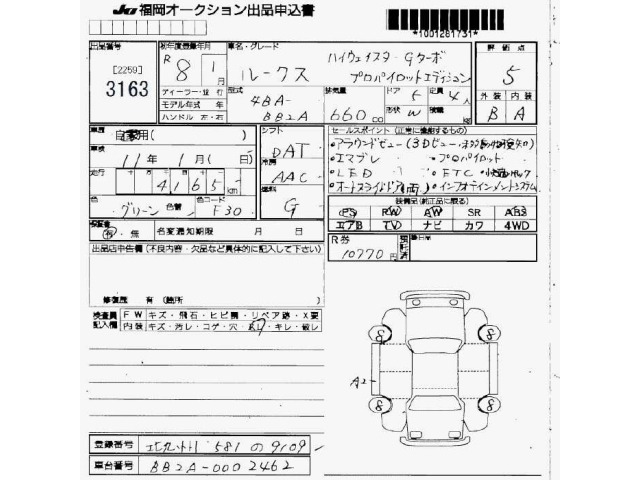 JU 福岡オークション出品申込書
*1001281731*
出品番号
[2259]
3163
初年度登録年月
R 8年 1月
車名・グレード
ルークス ハイウェイスターGターボ
プロパイロットエディション
評価点
5
外装 内装
B A
ディーラー・並行
モデル年式 年
ハンドル 左・右
型式
4BA-
BB2A
排気量
660 CC
ドア 5
形状 W
定員 4人
積載 kg
車歴 自家用( )
車検 11年 1月( 日)
走行 十万 万 千 百 十 一
4165 km
色 グリーン 色替
色コード F30
シフト
DAT
冷房
AAC
燃料
G
セールスポイント(正常に機能するもの)
・アラウンドビュー(3Dビュー・
・エマブレ ・プロパイロット
・LED ・ETC
・オートスライドドア(両) ・インフォテインメントシステム
装備品(純正品に限る)
PS PW AW SR ABS
エアB TV ナビ カワ 4WD
保証書
有・無
名変通知期限 月 日
R券
10770円
出品店申告欄(不良内容・欠品など具体的に記入して下さい)
修復歴 有(箇所 )
検査員記入欄
FW キズ・飛石・ヒビ割・リペア跡・X要
内装 キズ・汚レ・コゲ・穴・凹・キレ・破レ
8 8
A2
8 8
登録番号 北九州 581 の 9109
車台番号 BB2A-0002462